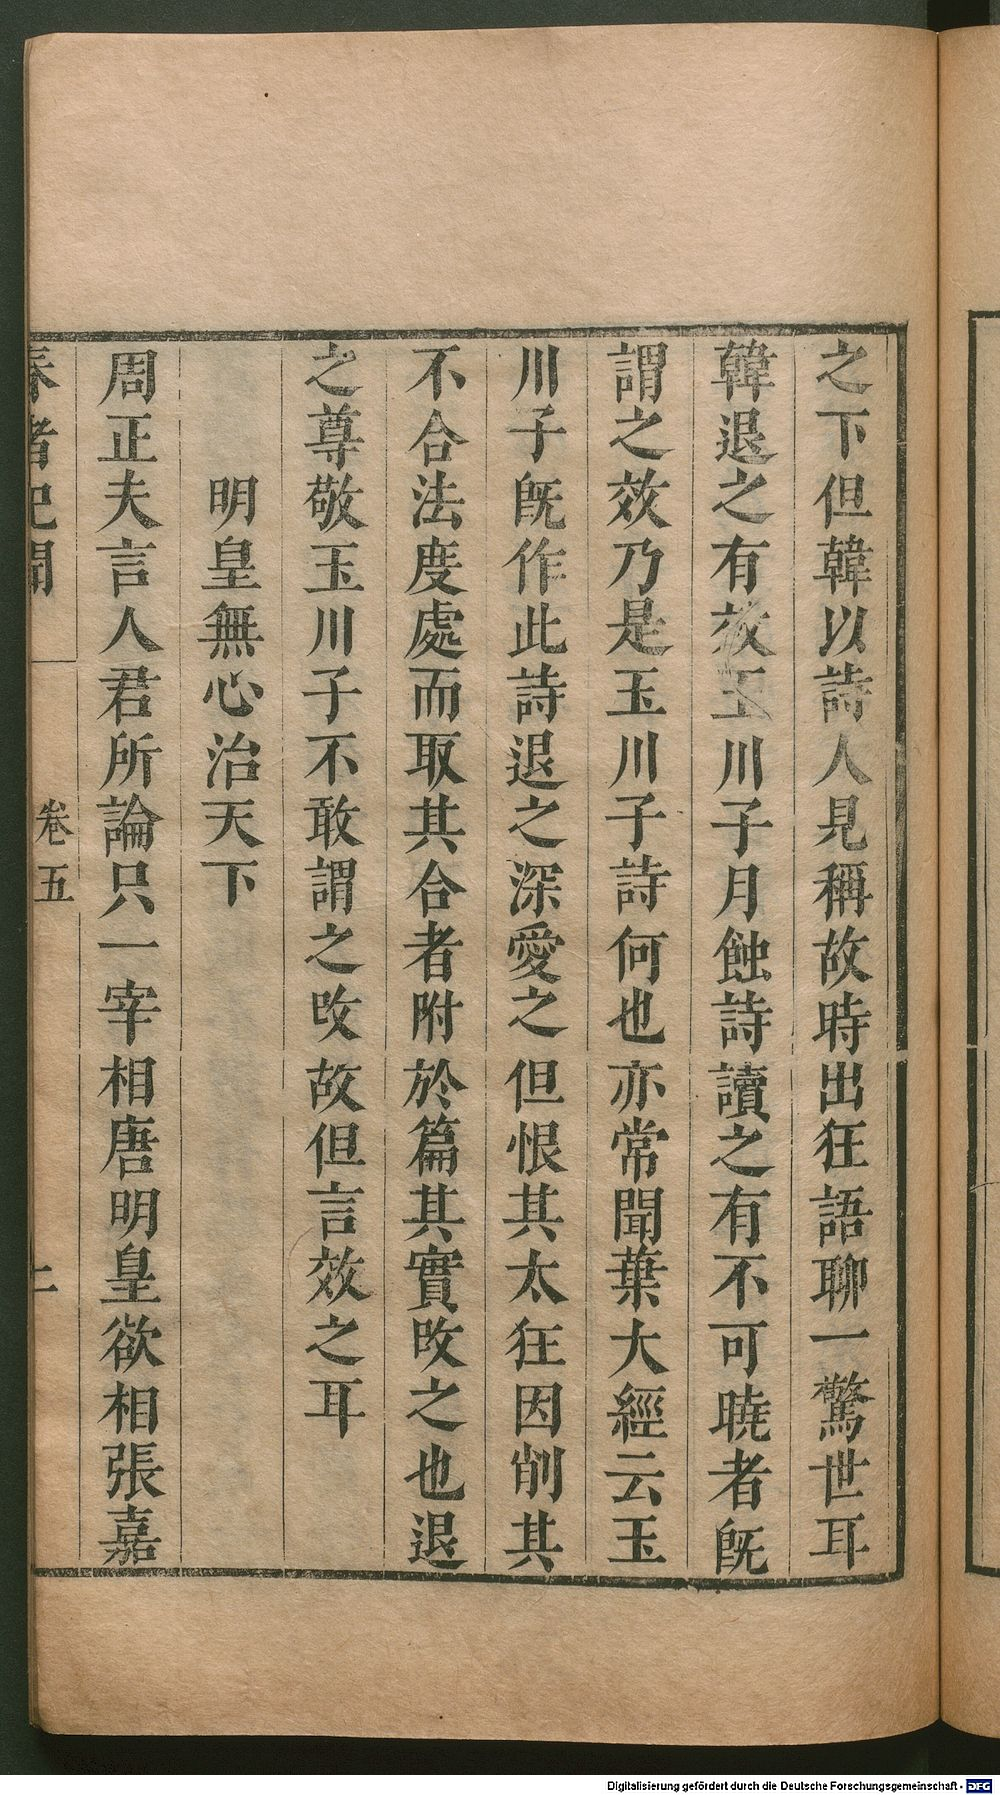 之下但韓以詩人見稱故時出狂語聊一驚世耳
韓退之有效玉川子月蝕詩讀之有不可曉者旣
謂之效乃是玉川子詩何也亦常聞葉大經云玉
川子旣作此詩退之深愛之但恨其太狂因削其
不合法度處而取其合者附於篇其實改之也退
之尊敬玉川子不敢謂之改故但言效之耳
明皇無心治天下
周正夫言人君所論只一宰相唐明皇欲相張嘉
春渚紀聞 卷五
Digitalisierung gefördert durch die Deutsche Forschungsgemeinschaft - DFG